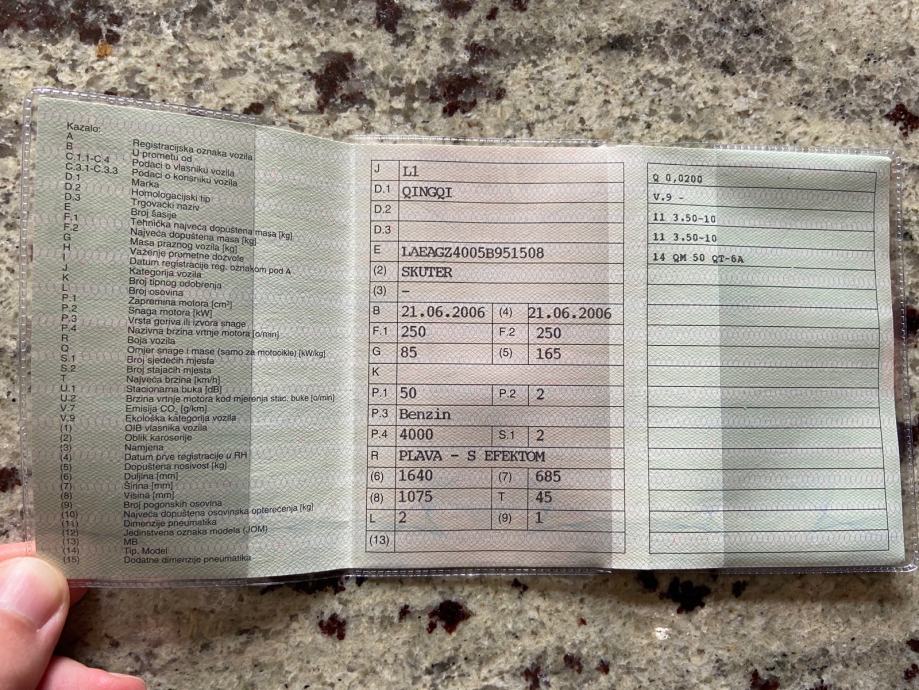 Kazalo:
A Registracijska oznaka vozila
B U prometu od
C.1.1-C.4 Podaci o vlasniku vozila
C.3.1-C.3.3 Podaci o korisniku vozila
D.1 Marka
D.2 Homologacijski tip
D.3 Trgovački naziv
E Broj šasije
F.1 Tehnička najveća dopuštena masa [kg]
F.2 Najveća dopuštena masa [kg]
G Masa praznog vozila [kg]
H Važenje prometne dozvole
I Datum registracije reg. oznakom pod A
J Kategorija vozila
K Broj tipnog odobrenja
L Broj osovina
P.1 Zapremina motora [cm³]
P.2 Snaga motora [kW]
P.3 Vrsta goriva ili izvora snage
P.4 Nazivna brzina vrtnje motora [o/min]
R Boja vozila
Q Omjer snage i mase (samo za motocikle) [kW/kg]
S.1 Broj sjedećih mjesta
S.2 Broj stajaćih mjesta
T Najveća brzina [km/h]
U.1 Stacionarna buka [dB]
U.2 Brzina vrtnje motora kod mjerenja stac. buke [o/min]
V.7 Emisija CO₂ [g/km]
V.9 Ekološka kategorija vozila
(1) OIB vlasnika vozila
(2) Oblik karoserije
(3) Namjena
(4) Datum prve registracije u RH
(5) Dopuštena nosivost [kg]
(6) Duljina [mm]
(7) Širina [mm]
(8) Visina [mm]
(9) Broj pogonskih osovina
(10) Najveća dopuštena osovinska opterećenja [kg]
(11) Dimenzije pneumatika
(12) Jedinstvena oznaka modela (JOM)
(13) MB
(14) Tip, Model
(15) Dodatne dimenzije pneumatika
J L1
D.1 QINGQI
D.2
D.3
E LAEAGZ4005B951508
(2) SKUTER
(3) –
B 21.06.2006 (4) 21.06.2006
F.1 250 F.2 250
G 85 (5) 165
K
P.1 50 P.2 2
P.3 Benzin
P.4 4000 S.1 2
R PLAVA - S EFEKTOM
(6) 1640 (7) 685
(8) 1075 T 45
L 2 (9) 1
(13)
Q 0,0200
V.9 -
11 3.50-10
11 3.50-10
14 QM 50 QT-6A